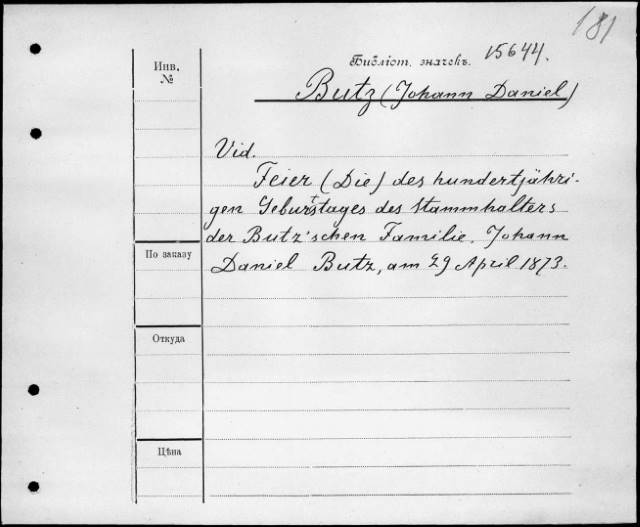 181
Библіот. значекъ. 15644.
Инв.
№
Butz (Johann Daniel)
Vid.
Feier (Die) des hundertjähri-
gen Geburtstages des Stammhalters
der Butz'schen Familie, Johann
По заказу
Daniel Butz, am 29 April 1873.
Откуда
Цѣна